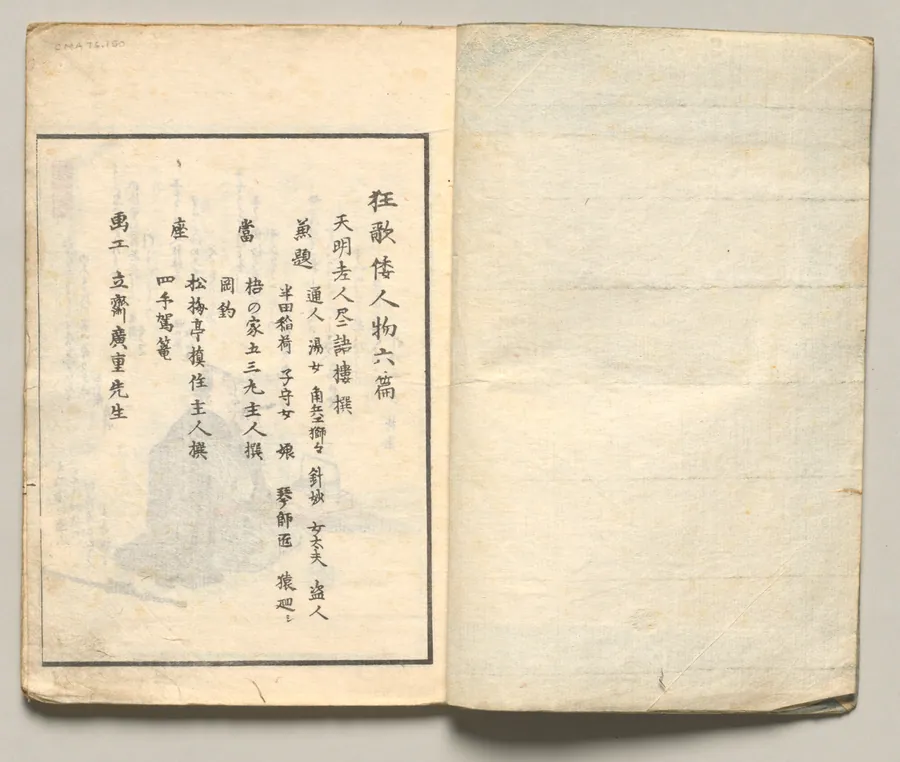 狂歌倭人物六篇
天明老人尽語樓撰
兼題
通人 湯女 角兵ヱ獅々 針妙 女太夫 盗人
半田稲荷 子守女 娘 琴師匠 猿廻シ
當
梧の家五三九主人撰
岡釣
座
松梅亭槙住主人撰
四手駕篭
画工 立齋廣重先生
CMA 76.160